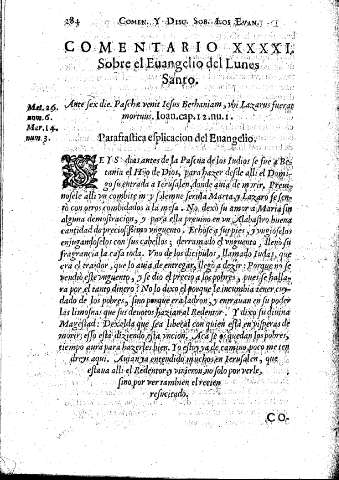 284 COMEN. Y DISC. SOB. LOS EVAN.
COMENTARIO XXXXI.
Sobre el Euangelio del Lunes
Santo.
Mat. 26.
num. 6.
Mar. 14.
num. 3.
Ante sex die. Paschæ venit Iesus Bethaniam, vbi Lazarus fuerat
mortuus. Ioan. cap. 12. nu. 1.
Parafrastica esplicacion del Euangelio.
SEYS dias antes de la Pascua de los Iudios se fue a Be-
tania el Hijo de Dios, para hazer desde alli el Domi-
go su entrada a Ierusalen, donde auia de morir,
vn combite muy solemne seruia Marta, y Lazaro se sen-
tò con otros combidados a la mesa. No dexò su amor a Maria sin
alguna demostracion, y para esta preuino en vn Alabastro buena
cantidad de preciosissimo vnguento. Echòse a sus pies, y vngioselos
enjugandoselos con sus cabellos; derramado el vnguento, llenò su
fragrancia la casa toda. Vno de los dicipulos, llamado Iudas, que
era el traydor, que lo auia de entregar, llegò a dezir: Porque no se
vendiò este vnguento, y se diò el precio a los pobres, que se halla-
ra por el tanto dinero? No lo dixo el porque le incumbia tener cuy-
dado de los pobres, sino porque era ladron, y entrauan en su poder
las limosnas que sus deuotos hazian al Redentor. Y dixo su diuina
Magestad: Dexalda que sea liberal con quien està en visperas de
morir; esso està diziendo esta vncion. Acà se os quedan los pobres,
tiempo aurà para hazerles bien. Yo estoy ya de camino, poco me ten
dreys aqui. Auian ya entendido muchos en Ierusalen, que
estaua alli el Redentor, y vinieron, no solo por verle,
sino por ver tambien el recien
resucitado.
CO-